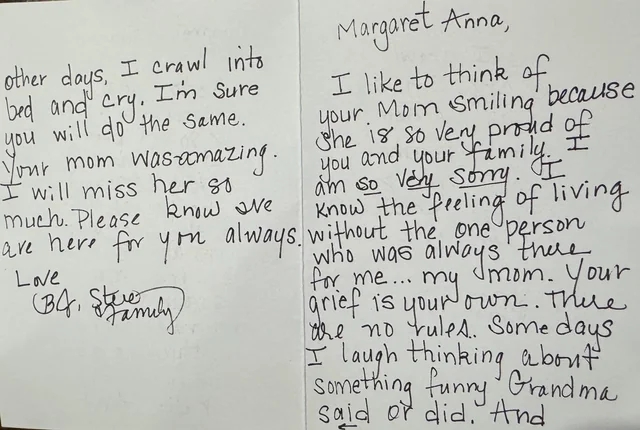 Margaret Anna,
I like to think of
your Mom smiling because
she is so very proud of
you and your family. I
am so very sorry. I
know the feeling of living
without the one person
who was always there
for me... my mom. Your
grief is your own. There
are no rules. Some days
I laugh thinking about
something funny Grandma
said or did. And
other days, I crawl into
bed and cry. I'm sure
you will do the same.
Your mom was amazing.
I will miss her so
much. Please know we
are here for you always.
Love
BJ, Steve
& Family